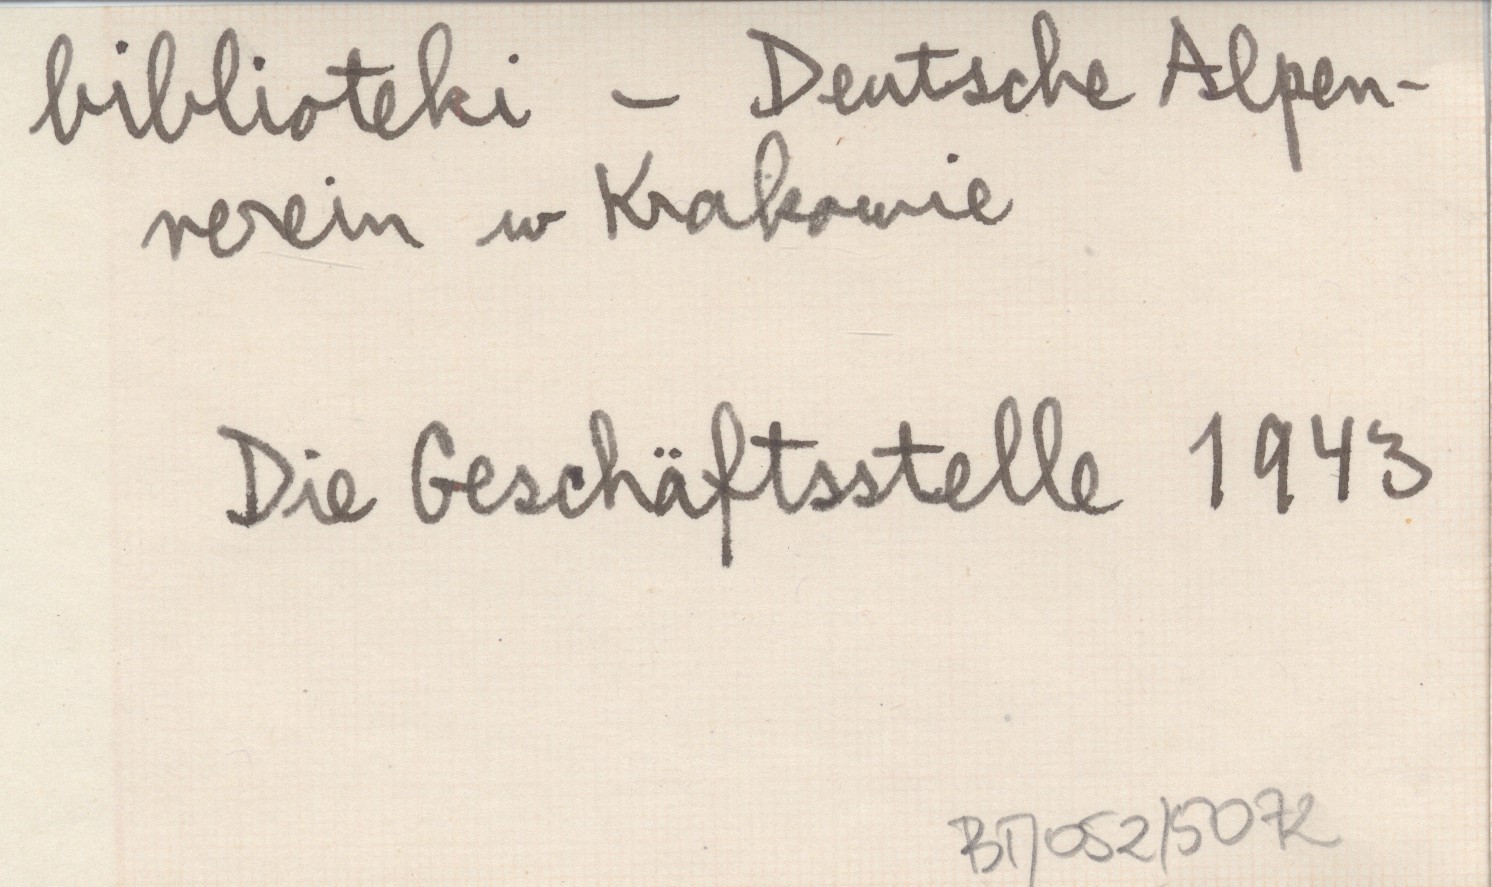 biblioteki – Deutsche Alpen-
verein w Krakowie
Die Geschäftsstelle 1943
BT/052/5072